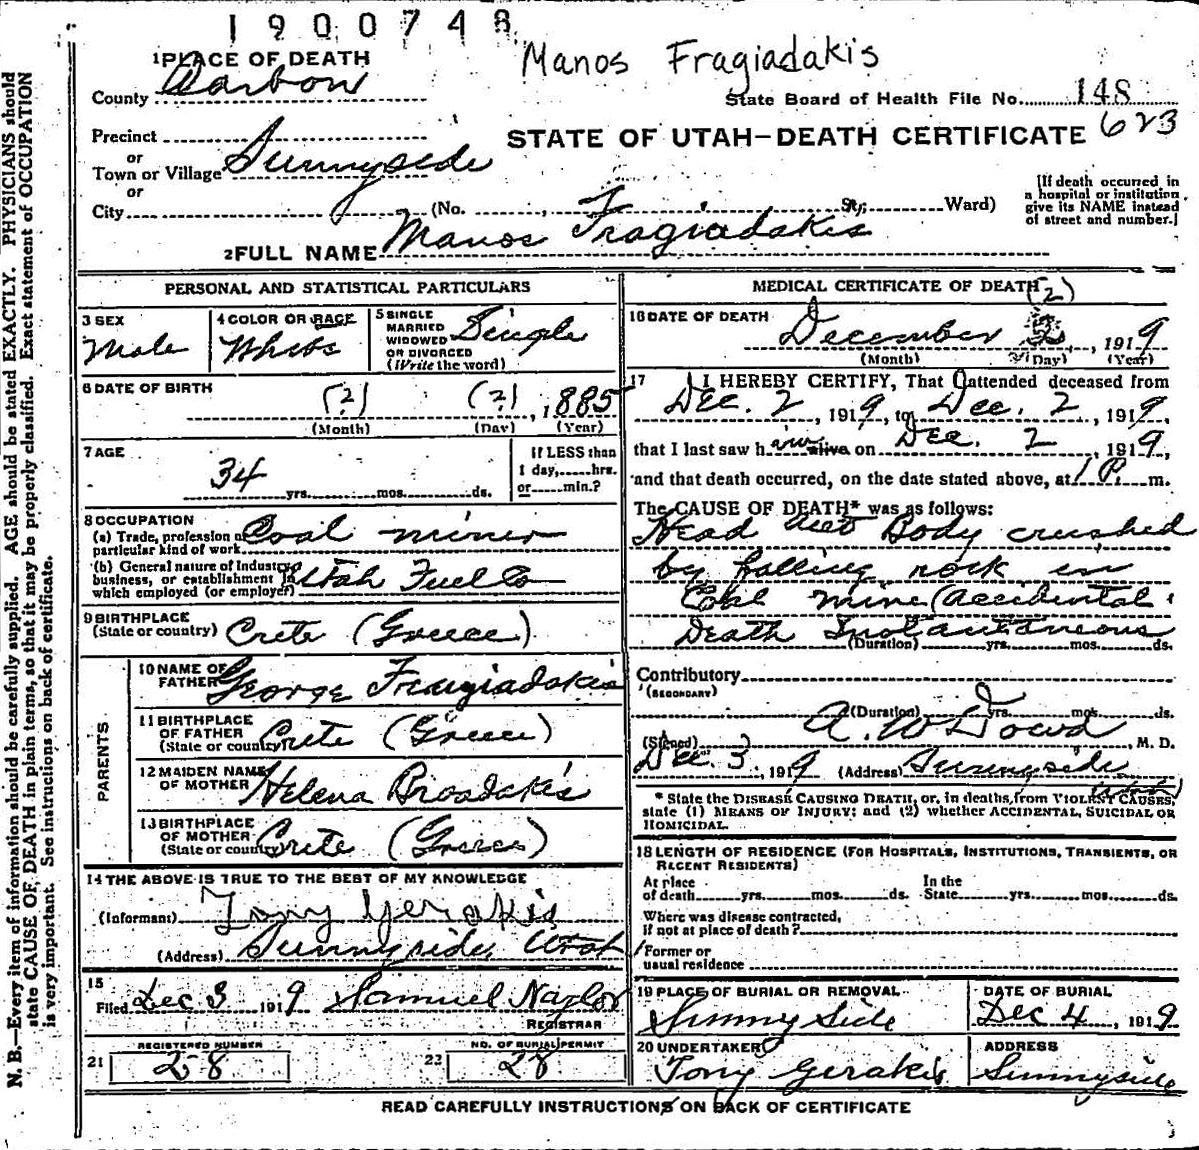 1900748
Manos Fragiadakis
1 PLACE OF DEATH
County Carbon
State Board of Health File No. 148
623
Precinct
or
Town or Village Sunnyside
or
City (No. , St; Ward)
STATE OF UTAH—DEATH CERTIFICATE
[If death occurred in a hospital or institution give its NAME instead of street and number.]
2 FULL NAME Manos Fragiadakis
PERSONAL AND STATISTICAL PARTICULARS
3 SEX Male
4 COLOR OR RACE White
5 SINGLE MARRIED WIDOWED OR DIVORCED (Write the word) Single
6 DATE OF BIRTH (?) (?) , 1885
(Month) (Day) (Year)
7 AGE 34 yrs. mos. ds.
If LESS than 1 day, hrs. or min.?
8 OCCUPATION
(a) Trade, profession or particular kind of work Coal miner
(b) General nature of Industry, business, or establishment in which employed (or employer) Utah Fuel Co
9 BIRTHPLACE (State or country) Crete (Greece)
PARENTS
10 NAME OF FATHER George Fragiadakis
11 BIRTHPLACE OF FATHER (State or country) Crete (Greece)
12 MAIDEN NAME OF MOTHER Helena
13 BIRTHPLACE OF MOTHER (State or country) Crete (Greece)
14 THE ABOVE IS TRUE TO THE BEST OF MY KNOWLEDGE
(Informant) Tony Yerakis
(Address) Sunnyside, Utah
15 Filed Dec 3 1919 Samuel Naylor
REGISTRAR
REGISTERED NUMBER
21 28
NO. OF BURIAL PERMIT
22 28
MEDICAL CERTIFICATE OF DEATH
(2)
16 DATE OF DEATH December 2, 1919
(Month) (Day) (Year)
17 I HEREBY CERTIFY, That I attended deceased from
Dec. 2, 1919, to Dec. 2, 1919
that I last saw him alive on Dec. 2, 1919,
and that death occurred, on the date stated above, at 1 P. m.
The CAUSE OF DEATH* was as follows:
Head and Body crushed
by falling rock in
Coal mine (accidental
Death Instantaneous
(Duration) yrs. mos. ds.
Contributory
(SECONDARY)
(Duration) yrs. mos. ds.
(Signed) A. W Dowd, M. D.
Dec. 3, 1919 (Address) Sunnyside Utah
* State the DISEASE CAUSING DEATH, or, in deaths, from VIOLENT CAUSES, state (1) MEANS OF INJURY; and (2) whether ACCIDENTAL, SUICIDAL OR HOMICIDAL.
18 LENGTH OF RESIDENCE (FOR HOSPITALS, INSTITUTIONS, TRANSIENTS, OR RECENT RESIDENTS)
At place of death yrs. mos. ds. In the State yrs. mos. ds.
Where was disease contracted, if not at place of death?
Former or usual residence
19 PLACE OF BURIAL OR REMOVAL Sunny Side
DATE OF BURIAL Dec 4, 1919
20 UNDERTAKER Tony Gerakis
ADDRESS Sunnyside
READ CAREFULLY INSTRUCTIONS ON BACK OF CERTIFICATE
N. B.—Every item of information should be carefully supplied. AGE should be stated EXACTLY. PHYSICIANS should
state CAUSE OF DEATH in plain terms, so that it may be properly classified. Exact statement of OCCUPATION
is very important. See instructions on back of certificate.